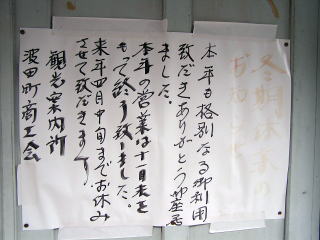 冬期休業の
お知らせ
本年も格別なる御利用
致だきありがとう御座居
ました。
本年の営業は十一月末を
もって終り致しました。
来年四月中旬までお休み
させて致だきます。
観光案内所
波田町商工会